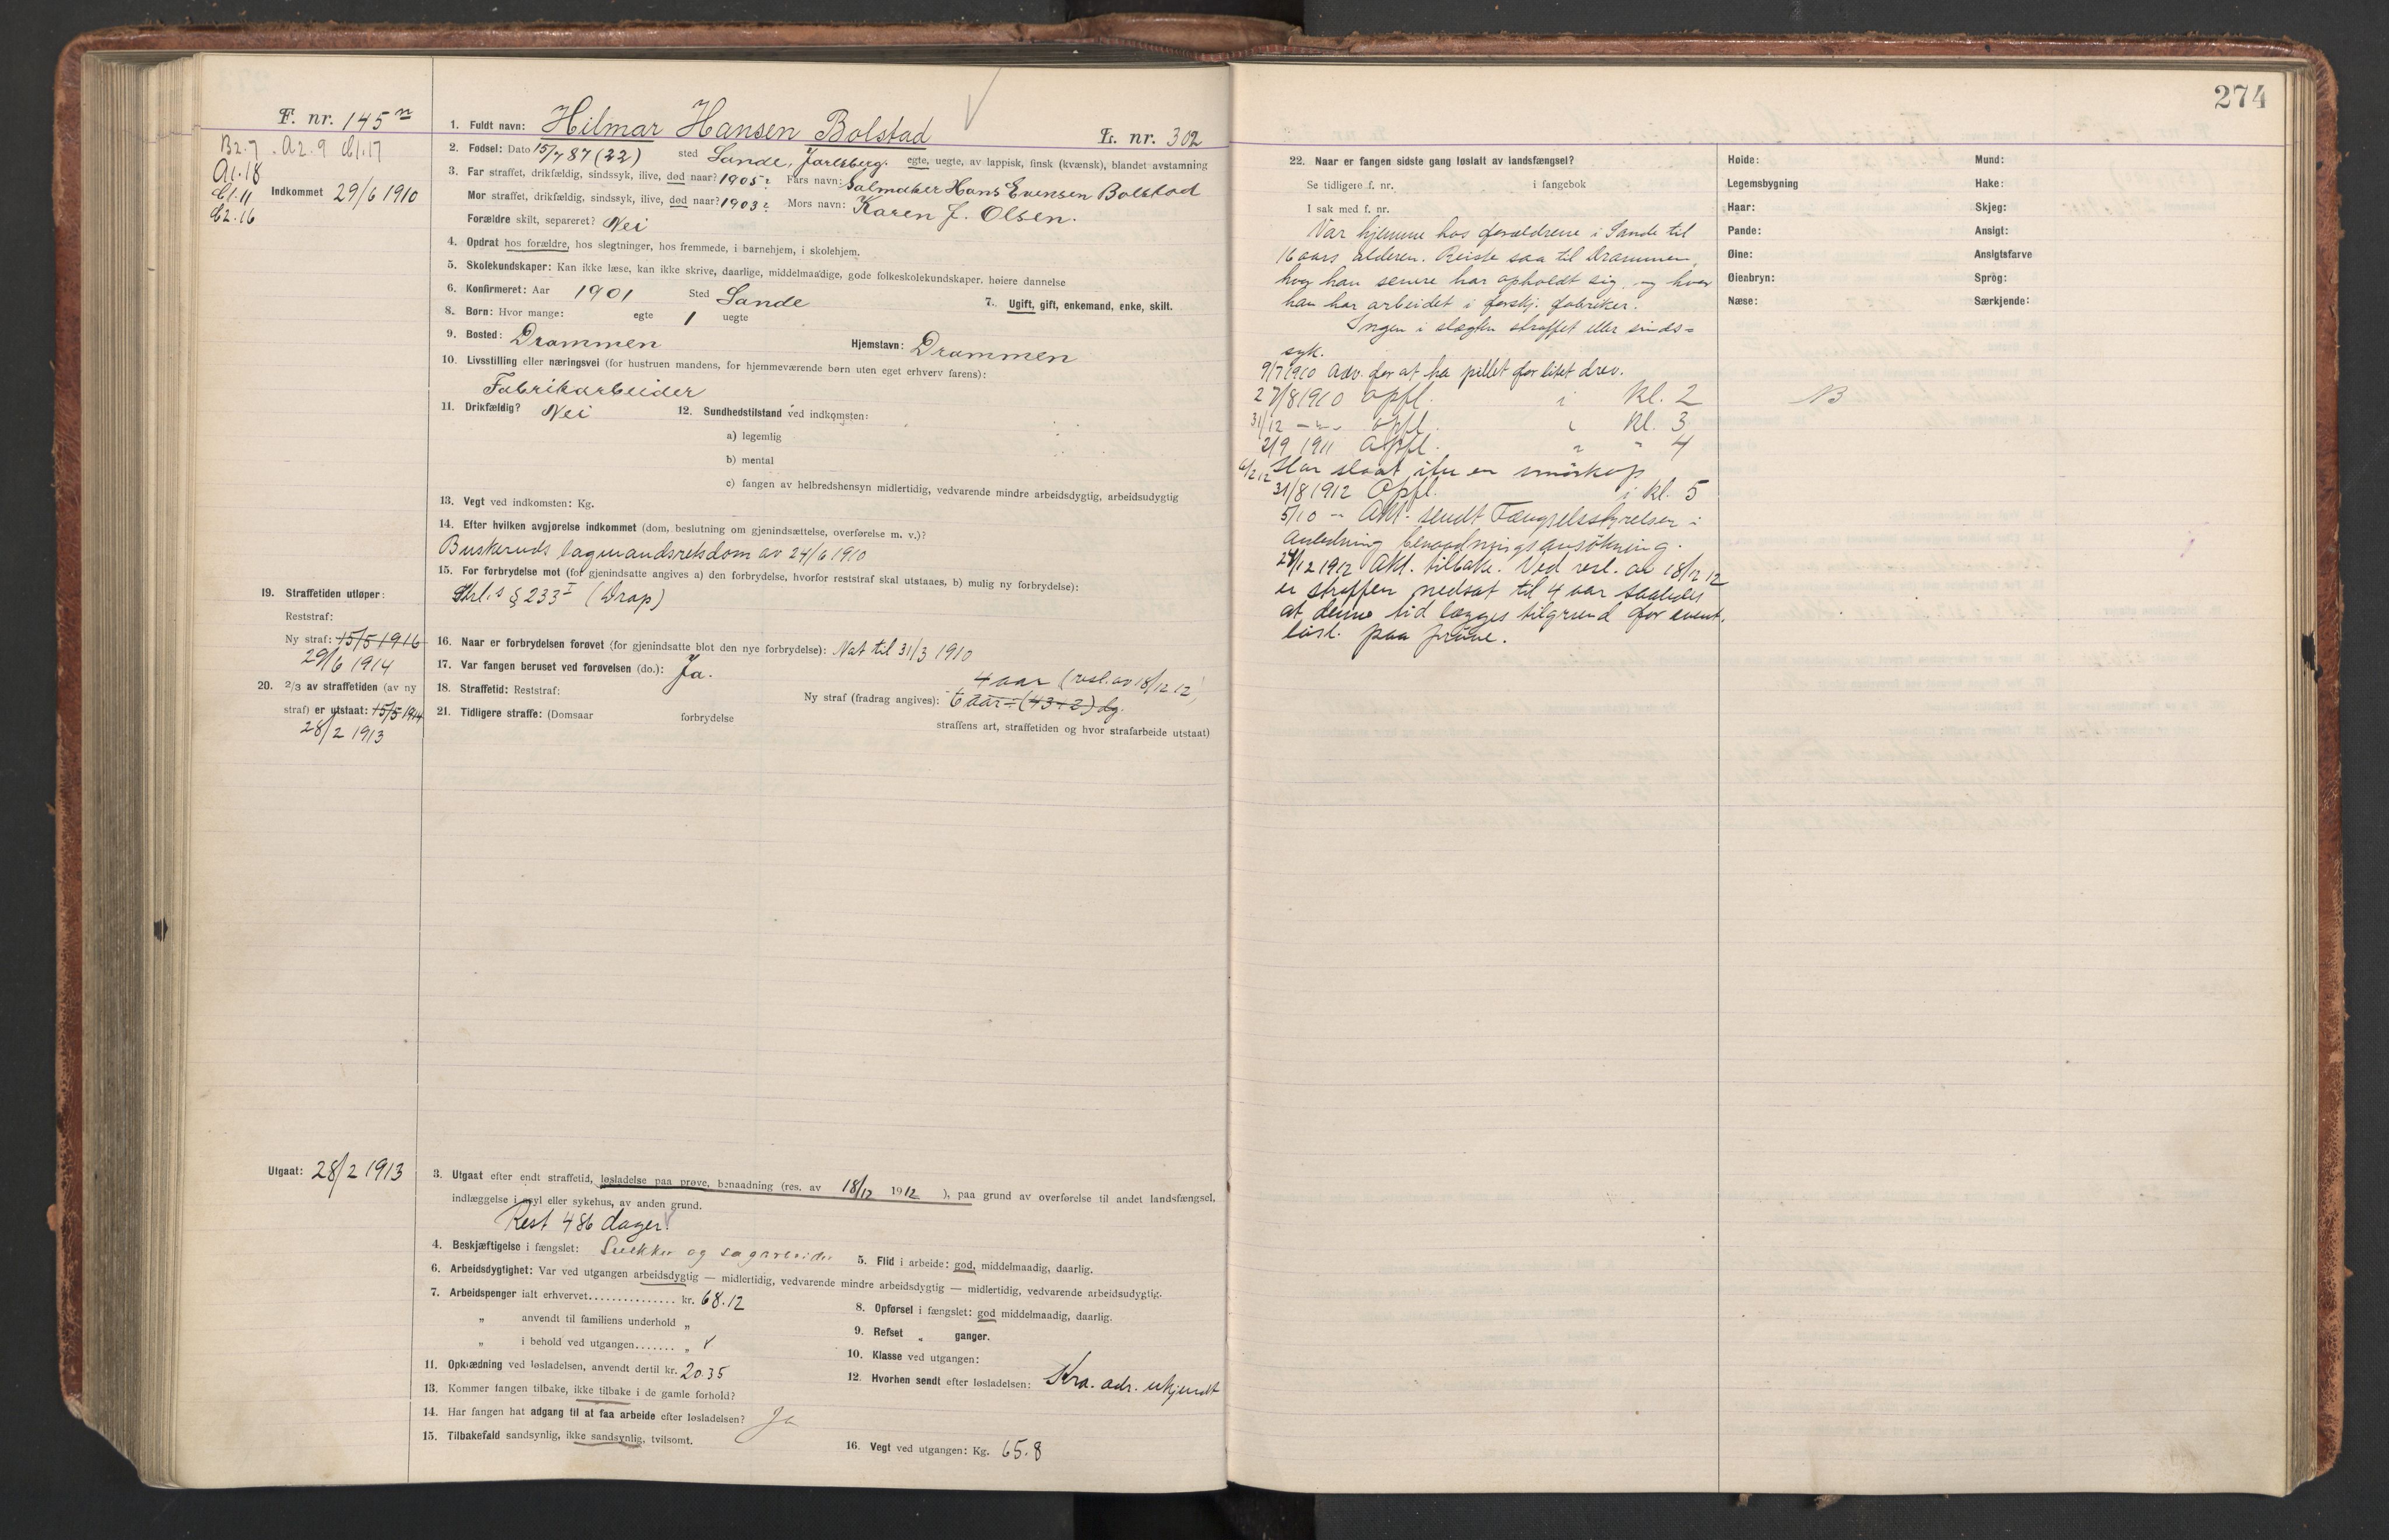 274
F. nr. 145 n
B2.7. A2.9 C1.17
A1.18
C1.11
C2.16
Indkommet 29/6 1910
1. Fuldt navn: Hilmar Hansen Bolstad
L. nr. 302
2. Fødsel: Dato 15/7 87 (22) sted Sande, Jarlsberg. egte, uegte, av lappisk, finsk (kvænsk), blandet avstamning
3. Far straffet, drikfældig, sindssyk, ilive, død naar? 1905? Fars navn: Salmaker Hans Evensen Bolstad
Mor straffet, drikfældig, sindssyk, ilive, død naar? 1903? Mors navn: Karen J. Olsen.
Forældre skilt, separeret? Nei
4. Opdrat hos forældre, hos slegtninger, hos fremmede, i barnehjem, i skolehjem.
5. Skolekundskaper: Kan ikke læse, kan ikke skrive, daarlige, middelmaadige, gode folkeskolekundskaper, høiere dannelse
6. Konfirmeret: Aar 1901 Sted Sande
7. Ugift, gift, enkemand, enke, skilt.
8. Børn: Hvor mange: egte 1 uegte
9. Bosted: Drammen Hjemstavn: Drammen
10. Livsstilling eller næringsvei (for hustruen mandens, for hjemmeværende børn uten eget erhverv farens):
Fabrikarbeider
11. Drikfældig? Nei 12. Sundhedstilstand ved indkomsten:
a) legemlig
b) mental
c) fangen av helbredshensyn midlertidig, vedvarende mindre arbeidsdygtig, arbeidsudygtig
13. Vegt ved indkomsten: Kg.
14. Efter hvilken avgjørelse indkommet (dom, beslutning om gjenindsættelse, overførelse m. v.)?
Buskeruds lagmandsretsdom av 24/6 1910
15. For forbrydelse mot (for gjenindsatte angives a) den forbrydelse, hvorfor reststraf skal utstaaes, b) mulig ny forbrydelse):
Strl.s § 233 I (Drap)
16. Naar er forbrydelsen forøvet (for gjenindsatte blot den nye forbrydelse): Nat til 31/3 1910
17. Var fangen beruset ved forøvelsen (do.): Ja.
4 aar (resl. av 18/12 12)
18. Straffetid: Reststraf: Ny straf (fradrag angives): 6 aar ÷ (43+2) dg.
19. Straffetiden utløper:
Reststraf:
Ny straf: 15/5 1916
29/6 1914
20. 2/3 av straffetiden (av ny
straf) er utstaat: 15/5 1914
28/2 1913
21. Tidligere straffe: (Domsaar forbrydelse straffens art, straffetiden og hvor strafarbeide utstaat)
Utgaat: 28/2 1913
3. Utgaat efter endt straffetid, løsladelse paa prøve, benaadning (res. av 18/12 1912), paa grund av overførelse til andet landsfængsel,
indlæggelse i asyl eller sykehus, av anden grund.
Rest 486 dager.
4. Beskjæftigelse i fængslet: Snekker og sagarbeider
5. Flid i arbeide: god, middelmaadig, daarlig.
6. Arbeidsdygtighet: Var ved utgangen arbeidsdygtig — midlertidig, vedvarende mindre arbeidsdygtig — midlertidig, vedvarende arbeidsudygtig.
7. Arbeidspenger ialt erhvervet............... kr. 68.12
„ anvendt til familiens underhold „
„ i behold ved utgangen....... „
8. Opførsel i fængslet: god middelmaadig, daarlig.
9. Refset „ ganger.
10. Klasse ved utgangen:
11. Opklædning ved løsladelsen, anvendt dertil kr. 20.35
12. Hvorhen sendt efter løsladelsen: Kra. adr. ukjendt
13. Kommer fangen tilbake, ikke tilbake i de gamle forhold?
14. Har fangen hat adgang til at faa arbeide efter løsladelsen? Ja
15. Tilbakefald sandsynlig, ikke sandsynlig, tvilsomt.
16. Vegt ved utgangen: Kg. 65.8
22. Naar er fangen sidste gang løslatt av landsfængsel?
Se tidligere f. nr. i fangebok
I sak med f. nr.
Var hjemme hos forældrene i Sande til
16 aars alderen. Reiste saa til Drammen,
hvor han senere har opholdt sig, og hvor
han har arbeidet i forskj. fabriker.
Ingen i slægten straffet eller sinds-
syk.
9/7 1910 Adv. for at ha pillet for litet drev.
27/8 1910 Opfl. i kl. 2
31/12 — Opfl. i kl. 3
2/9 1911 Opfl. " " 4
6/2 12 Har slaat itu en smørkop
31/8 1912 Opfl. i kl. 5
5/10 — Akt. sendt Fængselsstyrelsen i
anledning benaadningsansøkning.
24/12 1912 Akt. tilbake. Ved resl. av 18/12 12
er straffen nedsat til 4 aar saaledes
at denne tid lægges tilgrund for event.
løsl. paa prøve.
Høide: Mund:
Legemsbygning Hake:
Haar: Skjeg:
Pande: Ansigt:
Øine: Ansigtsfarve
Øienbryn: Sprog:
Næse: Særkjende:
B